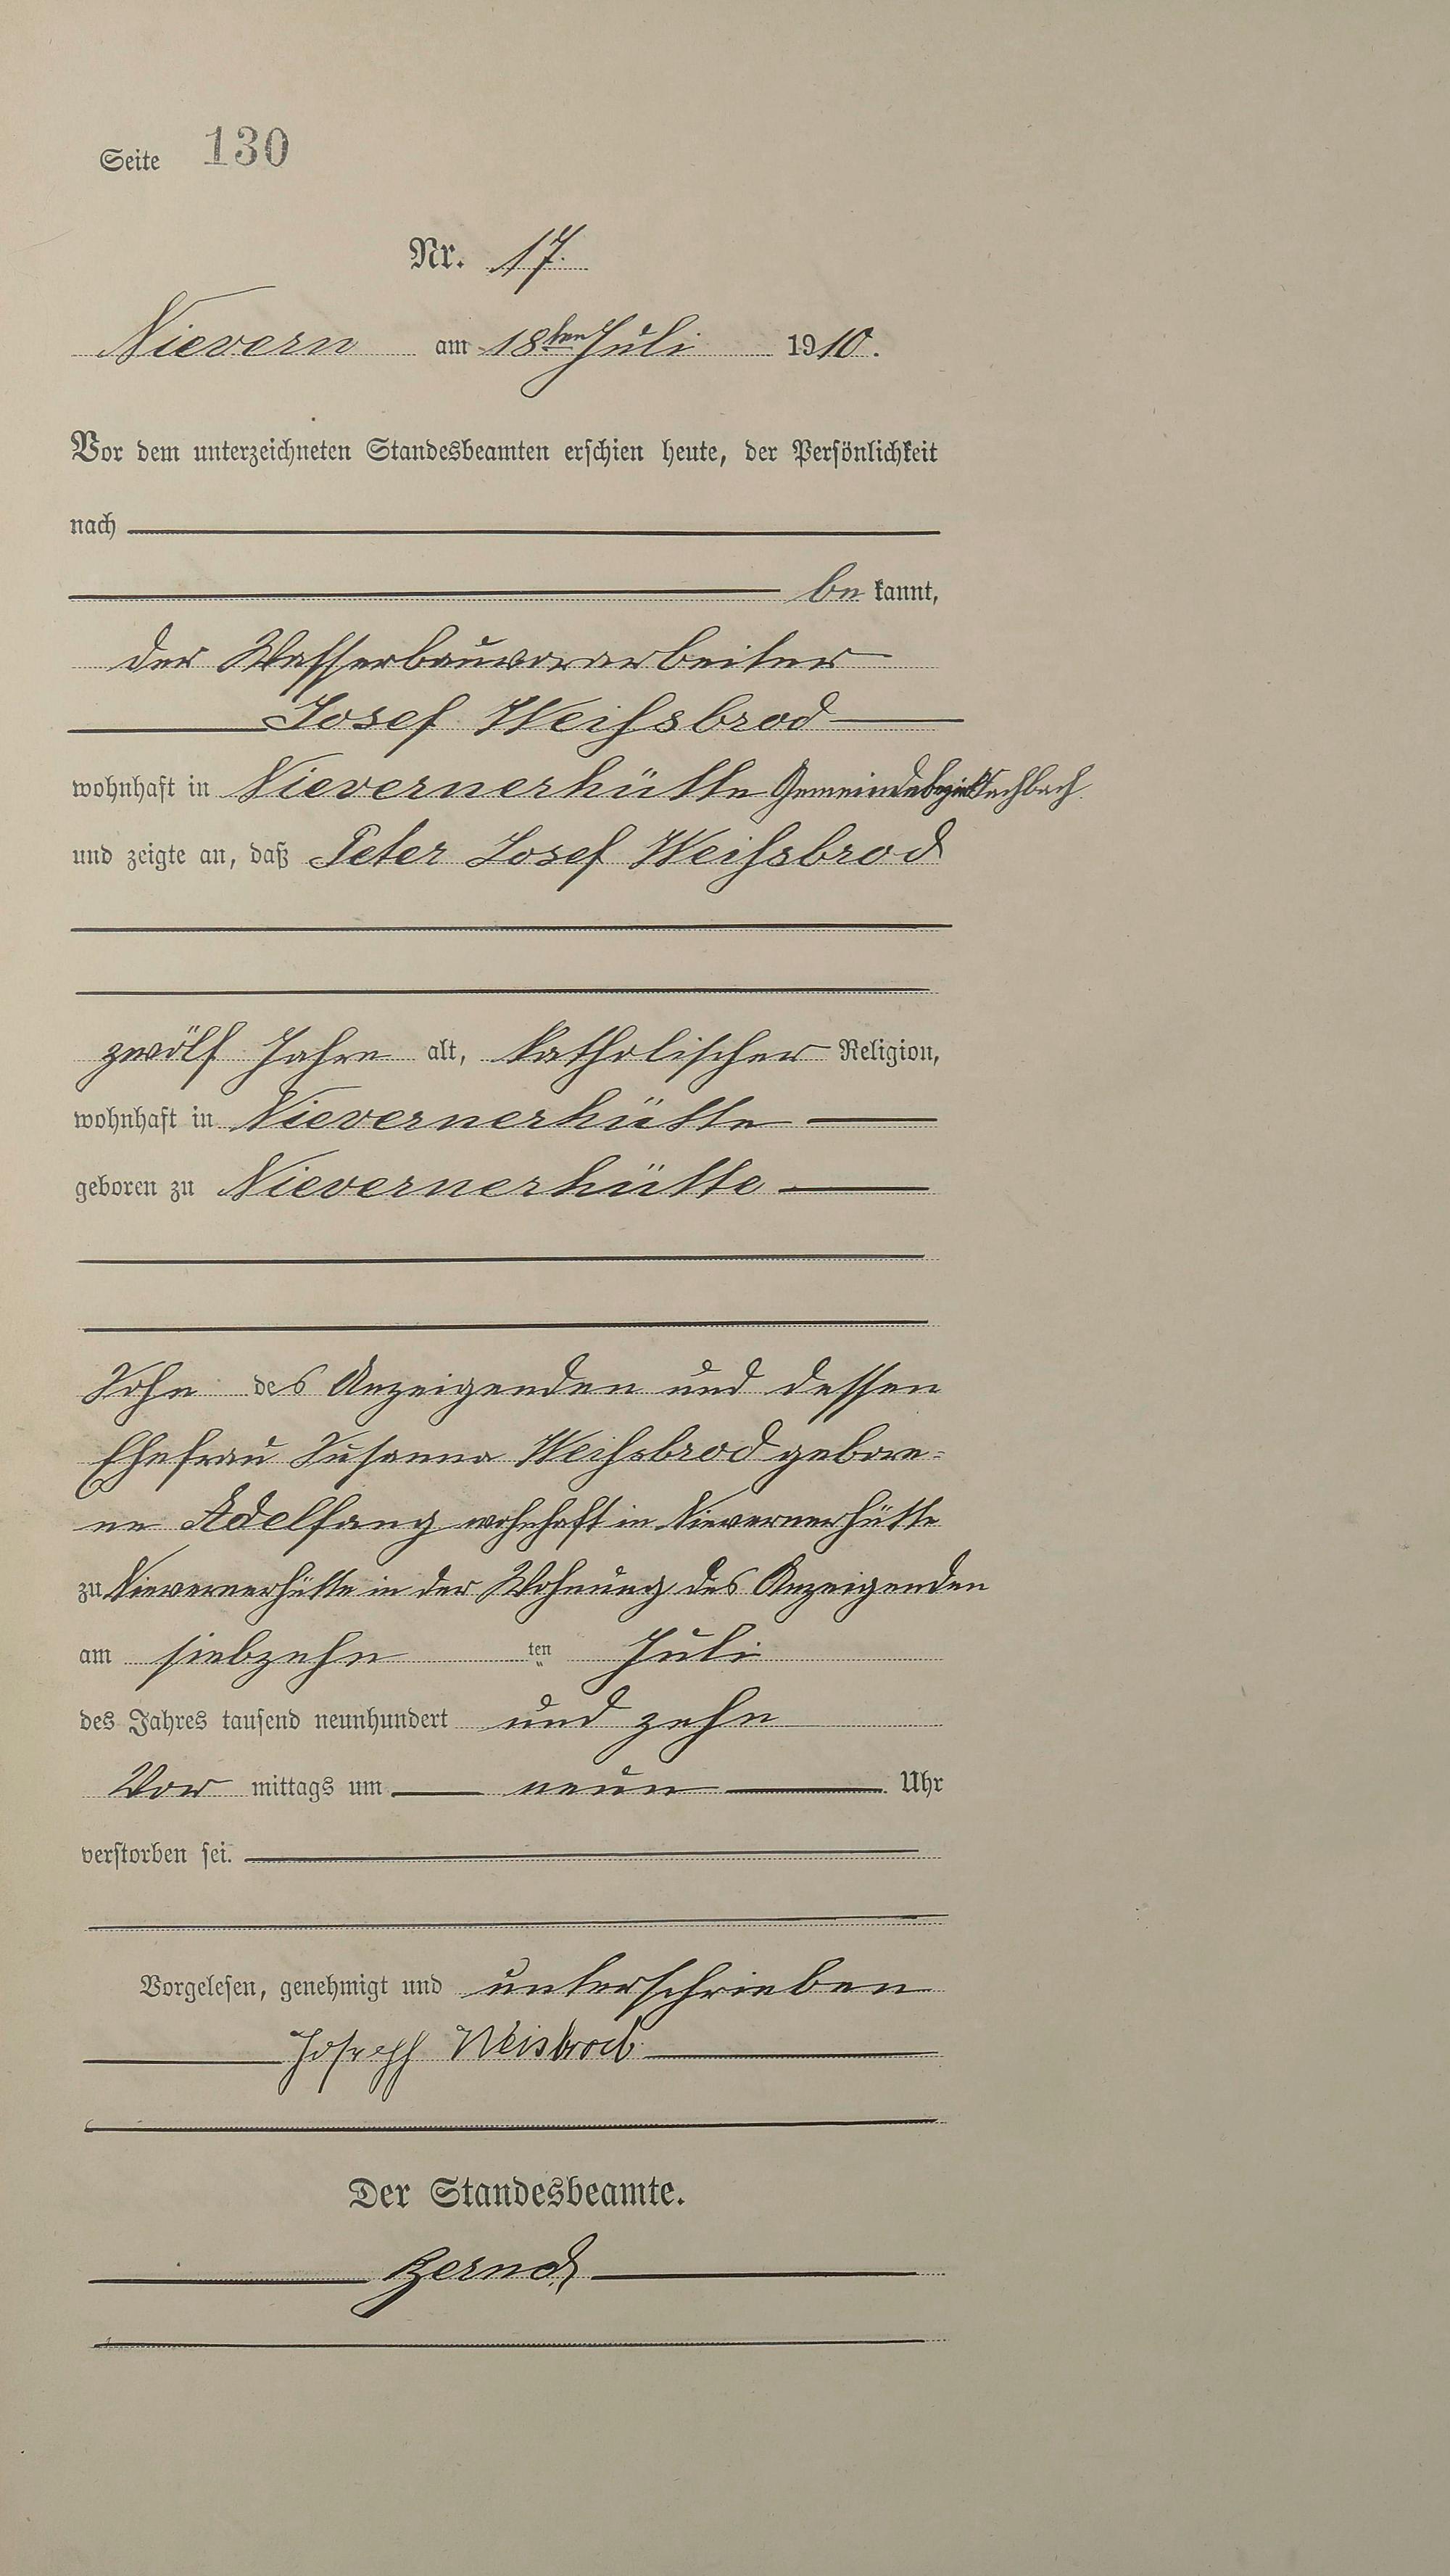 Seite 130
Nr. 17.
Nievern am 18ten Juli 1910.
Vor dem unterzeichneten Standesbeamten erschien heute, der Persönlichkeit
nach
be kannt,
der Wasserbauvorarbeiter
Josef Weißsbrod
wohnhaft in Nievernerhütte Gemeindebezirk Fachbach
und zeigte an, daß Peter Josef Weißsbrod
zwölf Jahre alt, katholischer Religion,
wohnhaft in Nievernerhütte
geboren zu Nievernerhütte
Sohn des Anzeigenden und dessen
Ehefrau Susanna Weißsbrod gebore-
ne Adelfang wohnhaft in Nievernerhütte
zu Nievernerhütte in der Wohnung des Anzeigenden
am siebzehn ten Juli
des Jahres tausend neunhundert und zehn
Vor mittags um neun Uhr
verstorben sei.
Vorgelesen, genehmigt und unterschrieben
Joseph Weisbrod
Der Standesbeamte.
Bernd